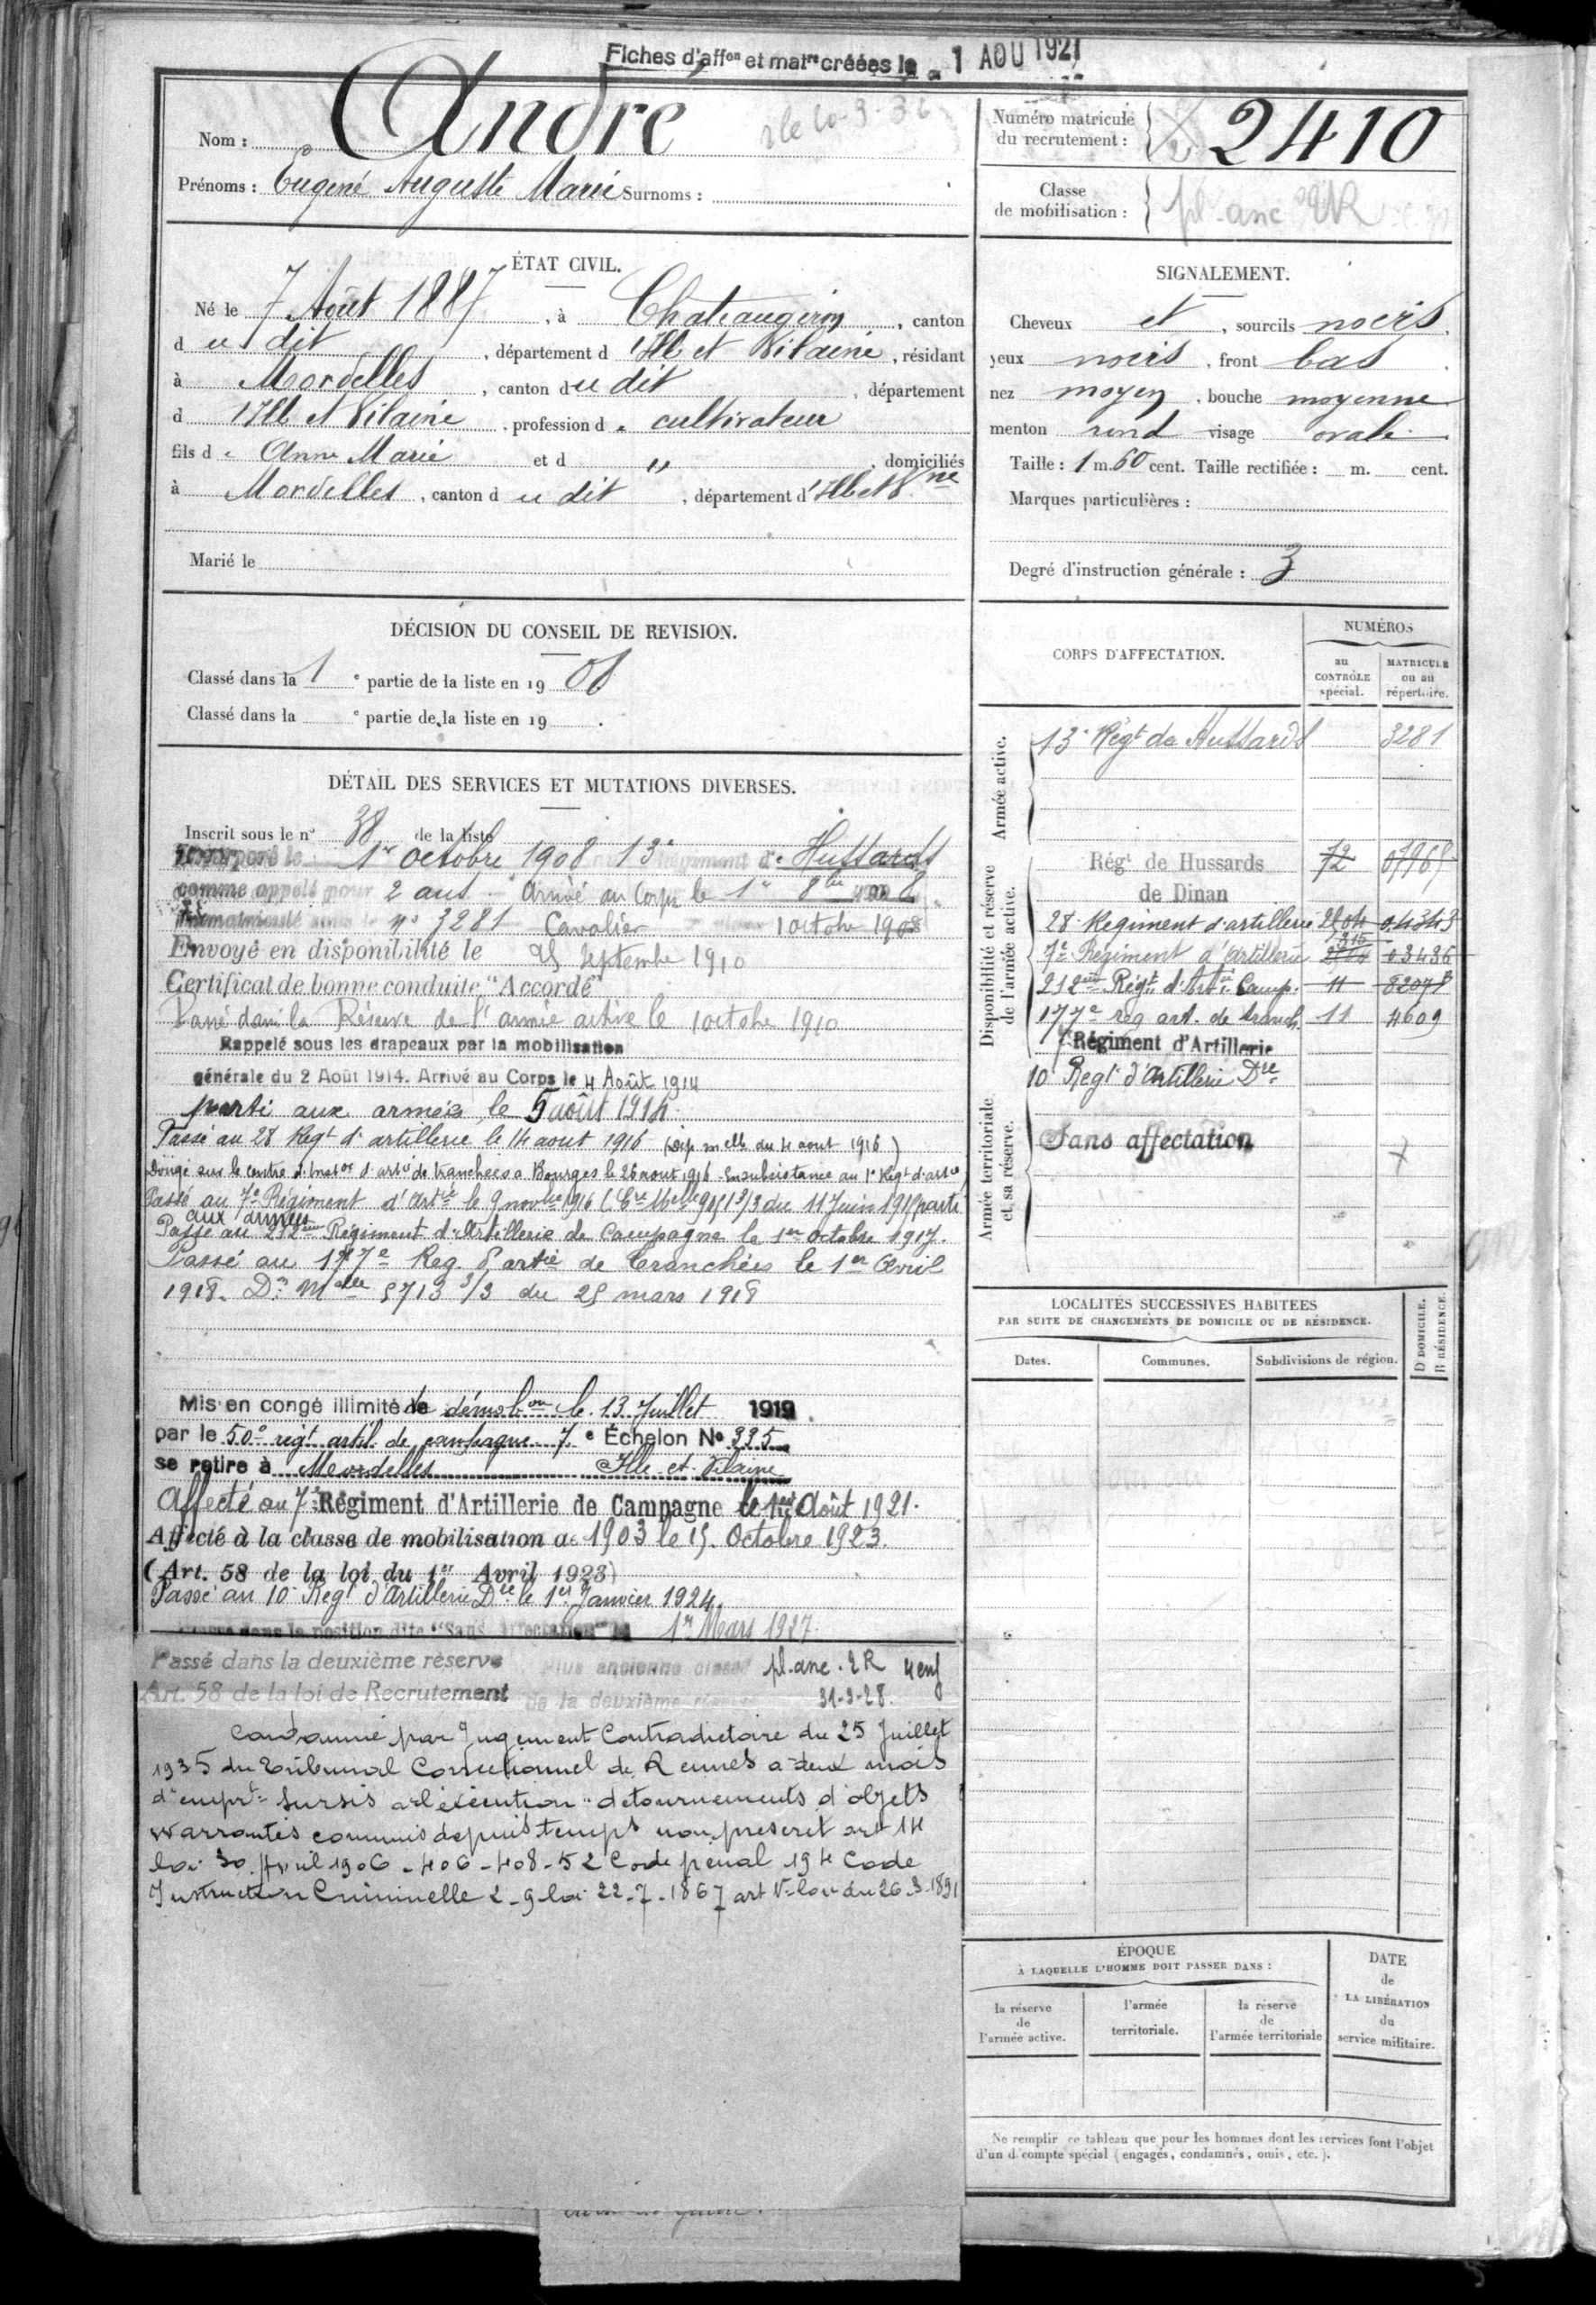 Fiches d'affon et matre créées le 1 AOU 1921
Nom : André
Prénoms : Eugène Auguste Marie Surnoms :
Numéro matricule
du recrutement : 2410
Classe
de mobilisation : pl. anc 2R
ÉTAT CIVIL.
Né le 7 Août 1887, à Chateaugiron, canton
du dit, département d'Ille et Vilaine, résidant
à Mordelles, canton du dit, département
d'Ille et Vilaine, profession de cultivateur
fils de Anne Marie et d " , domiciliés
à Mordelles, canton du dit, département d'Ille et Vne
Marié le
SIGNALEMENT.
Cheveux et, sourcils noirs.
yeux noirs, front bas
nez moyen, bouche moyenne
menton rond visage ovale
Taille : 1 m. 60 cent. Taille rectifiée : m. cent.
Marques particulières :
Degré d'instruction générale : 3
DÉCISION DU CONSEIL DE REVISION.
Classé dans la 1e partie de la liste en 1908
Classé dans la e partie de la liste en 19 .
DÉTAIL DES SERVICES ET MUTATIONS DIVERSES.
Inscrit sous le n° 38 de la liste
Incorporé le 1er octobre 1908 13e Régiment de Hussards
comme appelé pour 2 ans. Arrivé au Corps le 1er 8bre
Immatriculé sous le n° 3281 Cavalier 1 octobre 1908
Envoyé en disponibilité le 25 Septembre 1910
Certificat de bonne conduite "Accordé"
Passé dans la Réserve de l'armée active le 1 octobre 1910
Rappelé sous les drapeaux par la mobilisation
générale du 2 Août 1914. Arrivé au Corps le 4 Août 1914
parti aux armées le 5 août 1914.
Passé au 28 Regt d'artillerie le 14 aout 1916 (Dép. melle du 4 aout 1916)
Dirigé sur le centre d'instron d'artie de tranchées a Bourges le 26 aout 1916 En subsistance au 1er Regt d'artie
Passé au 7e Régiment d'Artie le 9 novbre 1916 (Cre Melle 9151 3/3 du 11 Juin 1917) parti
aux armées
Passé au 212eme Régiment d'Artillerie de Campagne le 1er octobre 1917.
Passé au 177e Reg d'artie de Tranchées le 1er Avril
1918. Don Melle 5713 3/3 du 25 mars 1918
Mis en congé illimité de démobon le 13 Juillet 1919.
par le 50e regt artil. de campagne 7e Échelon N° 335
se retire à Mordelles Ille et Vilaine
Affecté au 7e Régiment d'Artillerie de Campagne le 1er Août 1921.
Affecté à la classe de mobilisation de 1903 le 15 Octobre 1923.
(Art. 58 de la loi du 1er Avril 1923)
Passé au 10e Regt d'Artillerie Dre le 1er Janvier 1924.
dans la position dite "Sans affectation" le 1er Mars 1927.
Passé dans la deuxième réserve Plus ancienne classe pl. anc. 2R 4 enf
Art. 58 de la loi de Recrutement de la deuxième réserve 31-3-28.
Condamné par Jugement Contradictoire du 25 Juillet
1935 du Tribunal Correctionnel de Rennes a deux mois
d'emprt Sursis à l'exécution "detournements d'objets
warrantés commis depuis temps non prescrit art 14
loi 30 Avril 1906 - 406 - 408 - 52 Code pénal 194 Code
Instruction Criminelle 2-9 loi 22-7-1867 art 1er loi du 26-3-1891
CORPS D'AFFECTATION.
NUMÉROS
au
CONTRÔLE
spécial.
MATRICULE
ou au
répertoire.
Armée active.
13e Régt de Hussards 3281
Disponibilité et réserve
de l'armée active.
Régt de Hussards 72
de Dinan
28e Regiment d'artillerie 2204 04343
7e Régiment d'Artillerie 03436
212eme Régt d'Artie Camp. 11
177e reg art. de tranch. 11 4609
7e Régiment d'Artillerie
10e Regt d'Artillerie Dre
Armée territoriale
et sa réserve.
Sans affectation
LOCALITÉS SUCCESSIVES HABITÉES
PAR SUITE DE CHANGEMENTS DE DOMICILE OU DE RÉSIDENCE.
Dates. Communes. Subdivisions de région.
D DOMICILE.
R RÉSIDENCE.
ÉPOQUE
À LAQUELLE L'HOMME DOIT PASSER DANS :
la réserve
de
l'armée active.
l'armée
territoriale.
la réserve
de
l'armée territoriale
DATE
de
LA LIBÉRATION
du
service militaire.
Ne remplir ce tableau que pour les hommes dont les services font l'objet
d'un décompte spécial (engagés, condamnés, omis, etc.).